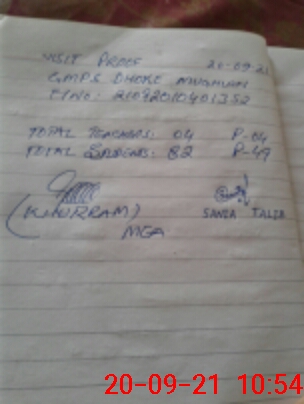 VISIT PROOF 20-09-21
GMPS DHOKE
EINO: 21092010401352
TOTAL TEACHERS: 04 P-04
TOTAL STUDENTS: 82 P-49
(KHURRAM) SANIA TALIB
MEA
20-09-21 10:54